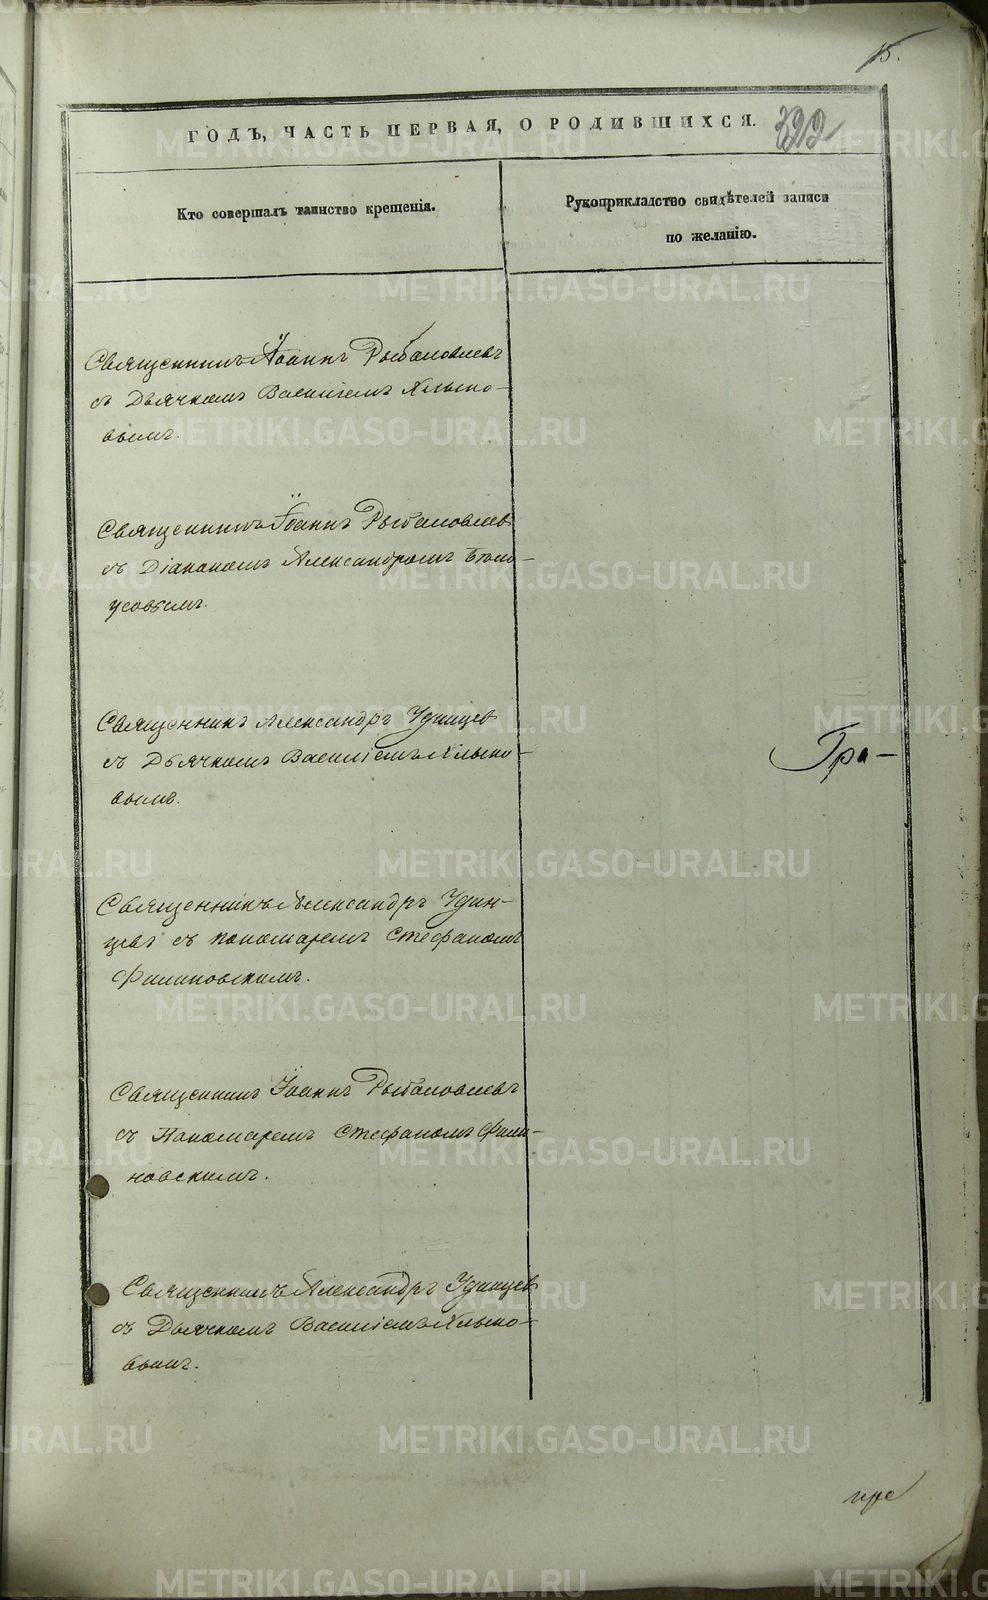 15.
ГОДЪ, ЧАСТЬ ПЕРВАЯ, О РОДИВШИХСЯ.
Кто совершалъ таинство крещенія.
Рукоприкладство свидѣтелей записи
по желанію.
Священникъ Іоаннъ Рыболовлевъ
съ Дьячкомъ Василіемъ Хлыно-
вымъ.
Священникъ Іоаннъ Рыболовлевъ
съ Діакономъ Александромъ
Священникъ Александръ Удинцев
съ Дьячкомъ Василіемъ Хлыно-
вымъ.
Гра-
Священникъ Александръ Удин-
цевъ съ пономаремъ Стефаномъ
Филиновскимъ.
Священникъ Іоаннъ Рыболовлевъ
съ Пономаремъ Стефаномъ Фили-
новскимъ.
Священникъ Александръ Удинцев
съ Дьячкомъ Василіемъ Хлыно-
вымъ.
METRIKI.GASO-URAL.RU